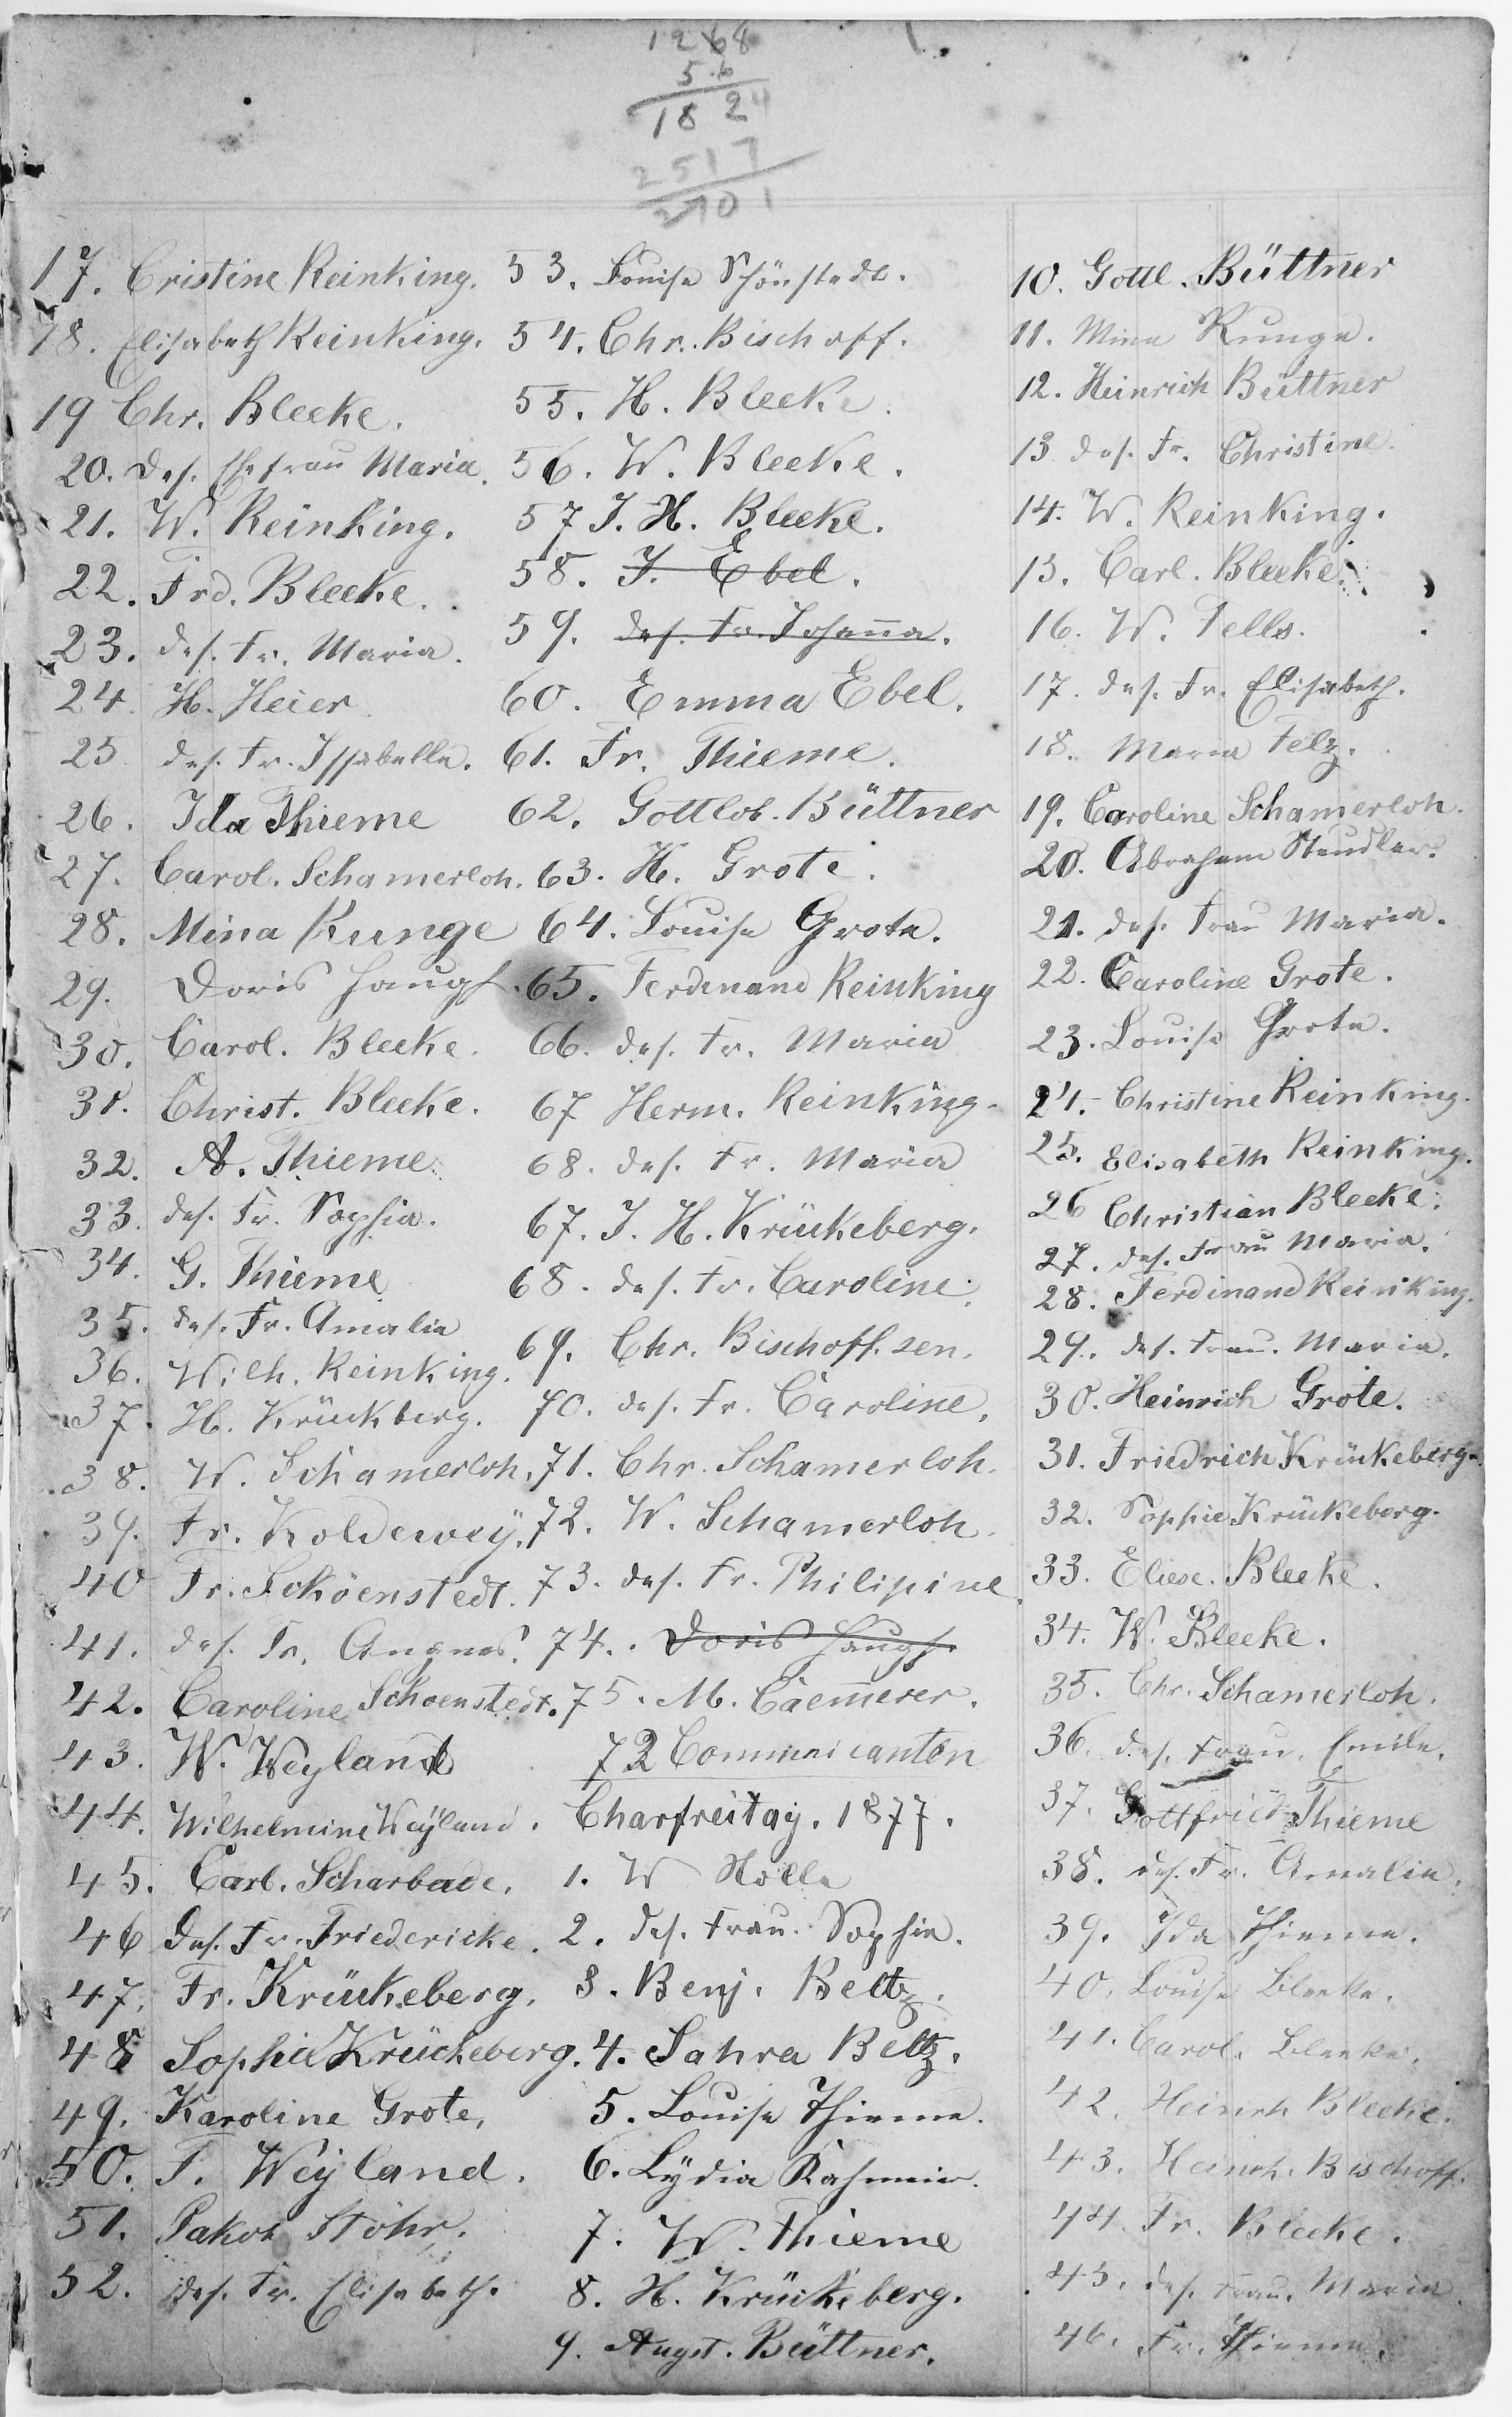 1268
56
1824
2517
2701
17. Cristine Reinking.
18. Elisabeth Reinking.
19 Chr. Bleeke.
20. des. Ehefrau Maria.
21. W. Reinking.
22. Frd. Bleeke.
23. des. Fr. Maria.
24 H. Heier
25 des. Fr. Issabelle.
26. Ida Thieme
27. Carol. Schamerloh.
28. Mina Runge
29. Doris
30. Carol. Bleeke.
31. Christ. Bleeke.
32. A. Thieme.
33. des. Fr. Sophia.
34. G. Thieme
35. des. Fr. Amalia
36. Wilh. Reinking.
37. H. Krückberg.
38. W. Schamerloh.
39. Fr. Koldewey.
40 Fr. Schöenstedt.
41. des. Fr. Angnes.
42. Caroline Schoenstedt.
43. W. Weyland
44. Wilhelmine Weyland.
45. Carl. Scharbade.
46 des. Fr. Friedericke.
47. Fr. Krückeberg.
48 Sophie Krückeberg.
49. Karoline Grote.
50. F. Weyland.
51. Jakob Stöhr.
52. des. Fr. Elisabeth.
53. Louise Schönstedt.
54. Chr. Bischoff.
55. H. Bleeke.
56. W. Bleeke.
57 J. H. Bleeke.
58. J. Ebel.
59. des. Fr. Johanna.
60. Emma Ebel.
61. Fr. Thieme.
62. Gottlob. Büttner
63. H. Grote.
64. Louise Grote.
65. Ferdinand Reinking
66. des. Fr. Maria
67 Herm. Reinking.
68. des. Fr. Maria
67. J. H. Krückeberg.
68. des. Fr. Caroline.
69. Chr. Bischoff. sen.
70. des. Fr. Caroline.
71. Chr. Schamerloh.
72. W. Schamerloh.
73. des. Fr. Philipine
74. Doris
75. M. Caem̄erer.
72 Communicanten
Charfreitag. 1877.
1. W Nolle
2. des. Frau. Sophia.
3. Benj. Beltz.
4. Sahra Beltz.
5. Louise Thieme.
6. Lydia
7. W. Thieme
8. H. Krückeberg.
9. Augst. Büttner.
10. Gottl. Büttner
11. Mina Runge.
12. Heinrich Büttner
13 des. Fr. Christine.
14. W. Reinking.
15. Carl. Bleeke.
16. W. Fells.
17. des. Fr. Elisabeth.
18. Maria Felz.
19. Caroline Schamerloh.
20. Abraham Stendler.
21. des. Frau Maria.
22. Caroline Grote.
23. Louise Grote.
24. Christine Reinking.
25. Elisabeth Reinking.
26 Christian Bleeke.
27. des. Frau Maria.
28. Ferdinand Reinking.
29. des. Frau. Maria.
30. Heinrich Grote.
31. Friedrich Krückeberg.
32. Sophie Krückeberg.
33. Eliese. Bleeke.
34. W. Bleeke.
35. Chr. Schamerloh.
36. des. Frau. Emile.
37. Gottfried Thieme
38. des. Fr. Amalia.
39. Ida Thieme.
40. Louise Bleeke.
41. Carol. Bleeke.
42. Heinrh Bleeke.
43. Heinrh. Bischoff.
44. Fr. Bleeke.
45. des. Frau. Maria
46. Fr. Thieme.